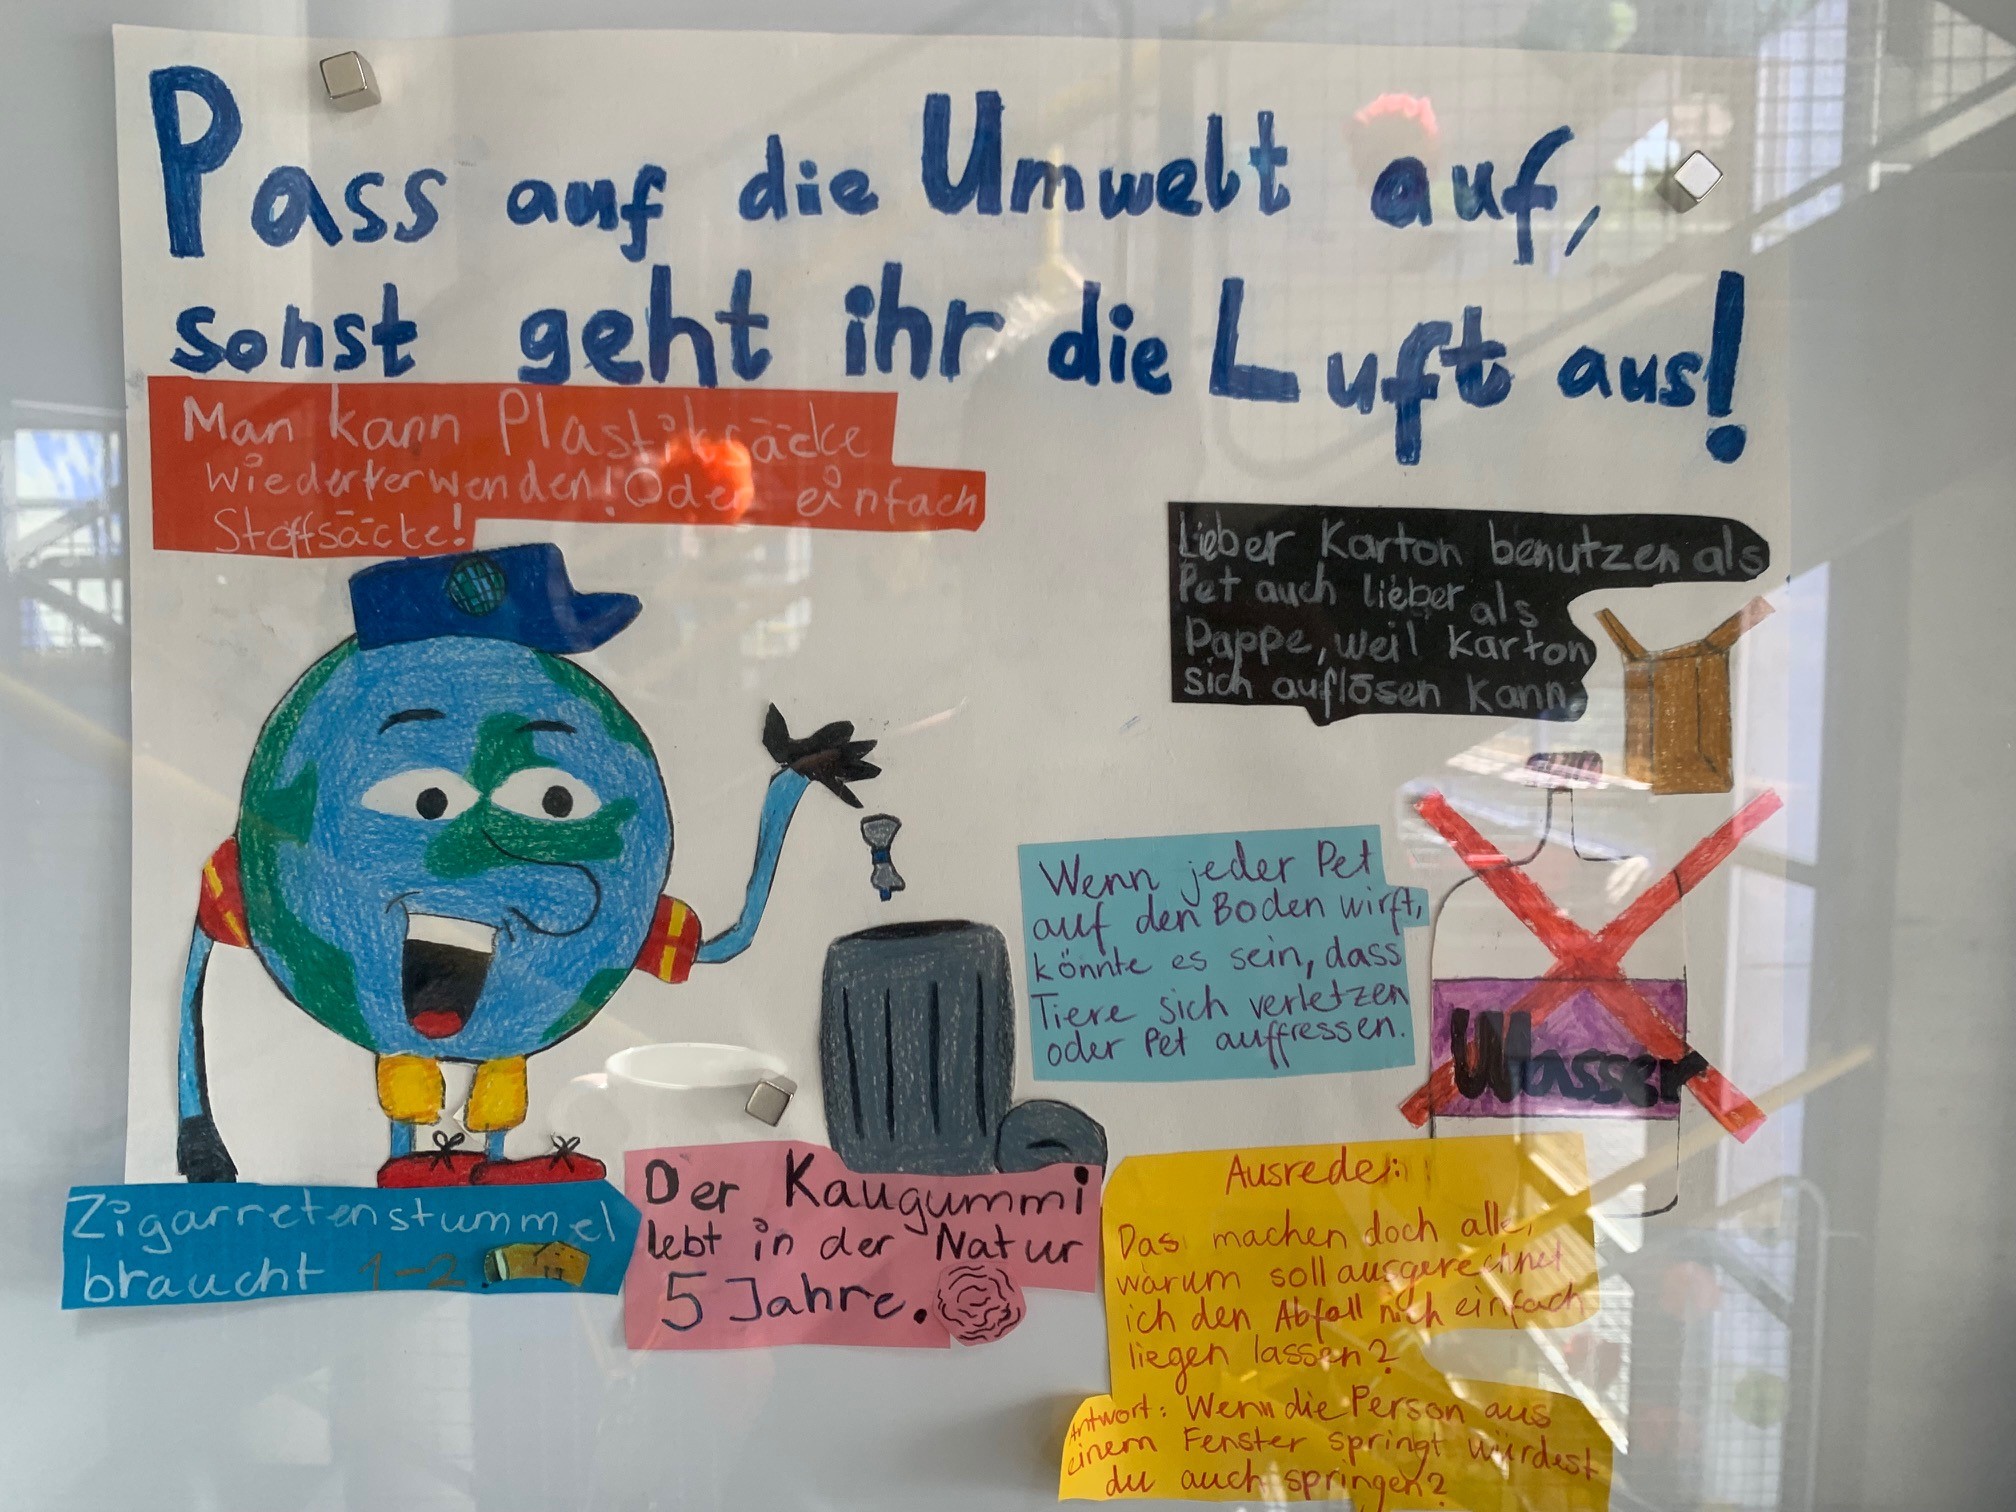 Pass auf die Umwelt auf,
sonst geht ihr die Luft aus!
Man kann Plastiksäcke
wiederverwenden! Oder einfach
Stoffsäcke!
Lieber Karton benutzen als
Pet auch lieber als
Pappe, weil Karton
sich auflösen kann.
Wenn jeder Pet
auf den Boden wirft,
könnte es sein, dass
Tiere sich verletzen
oder Pet auffressen.
Wasser
Zigarretenstummel
braucht 1-2
Der Kaugummi
lebt in der Natur
5 Jahre.
Ausrede:
Das machen doch alle,
warum soll ausgerechnet
ich den Abfall nich einfach
liegen lassen?
Antwort: Wenn die Person aus
einem Fenster springt würdest
du auch springen?